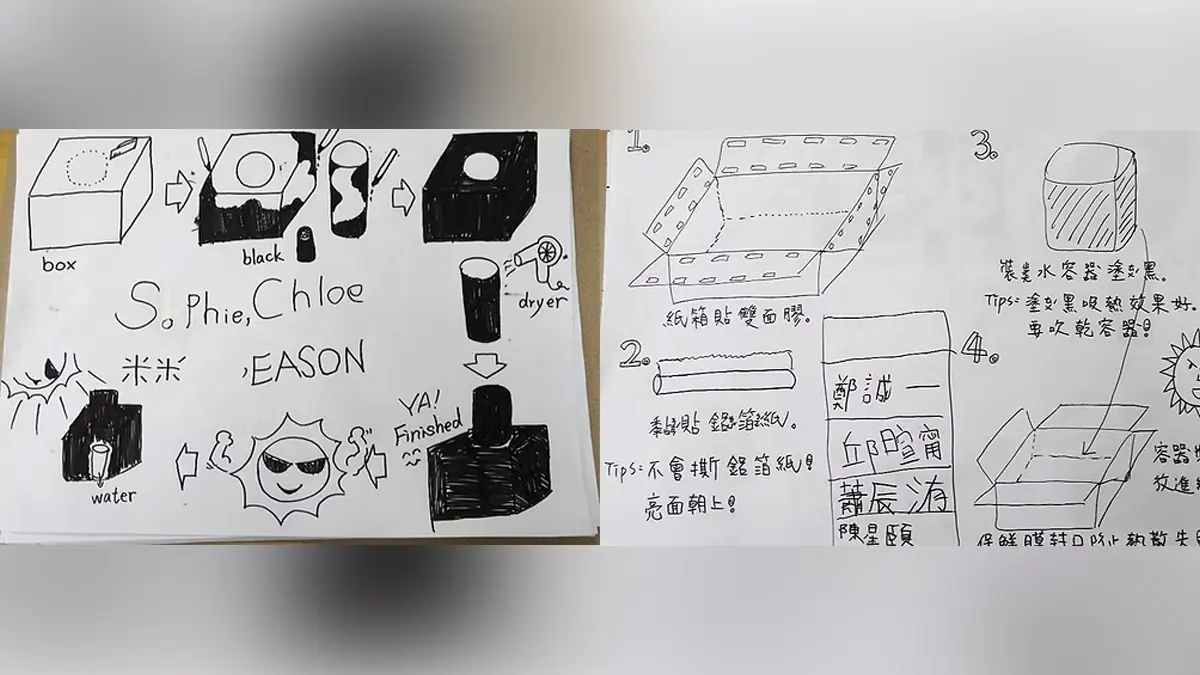 box
black
dryer
Sophie, Chloe
米米
,EASON
YA!
Finished
water
1.
紙箱貼雙面膠。
2.
黏貼鋁箔紙。
Tips:不會撕鋁箔紙!
亮面朝上!
鄭誠一
邱暄甯
蕭辰洧
陳星頤
3.
裝水容器塗黑。
Tips:塗黑吸熱效果好。
再吹乾容器!
4.
容器
放進
保鮮膜封口防止熱散失